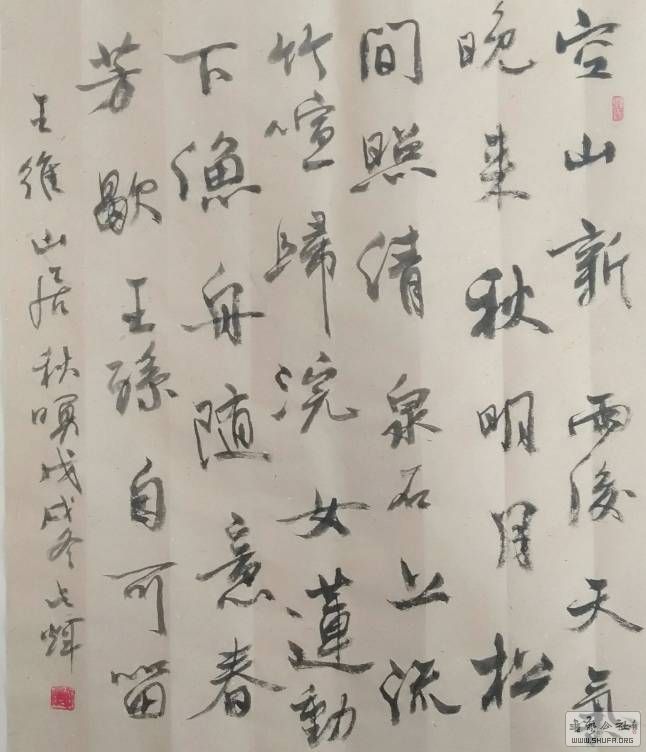 空山新雨後天氣
晚来秋明月松
間照清泉石上流
竹喧歸浣女蓮動
下漁舟随意春
芳歇王孫自可留
王維山居秋暝戊戌冬
WWW.SHUFA.ORG